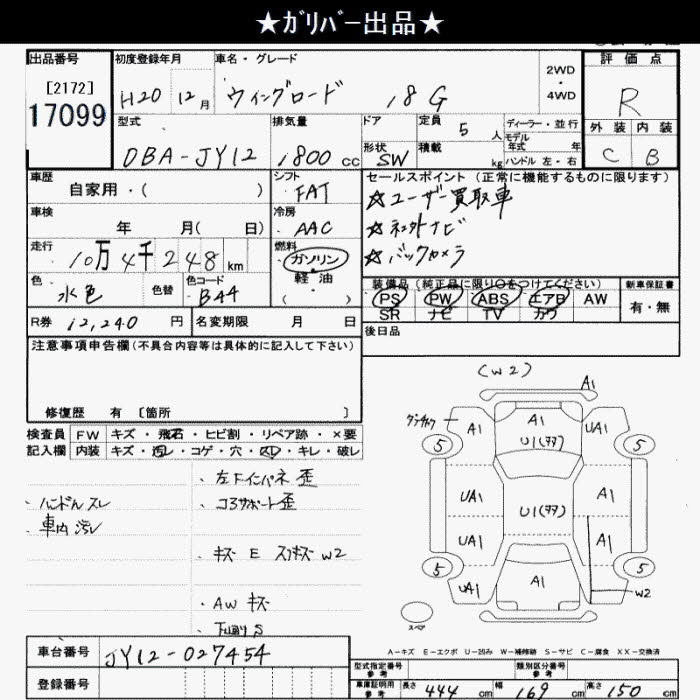 ★ガリバー出品★
出品番号 初度登録年月 車名・グレード 2WD・4WD 評価点
[2172]
17099
H20 12月 ウイングロード 18G R
型式 排気量 ドア 定員 5人 ディーラー・並行 外装 内装
モデル年式 年
DBA-JY12 1800cc 形状 SW 積載 kg ハンドル 左・右 C B
車歴 シフト セールスポイント(正常に機能するものに限ります)
自家用・( ) FAT ☆ユーザー買取車
車検 冷房
年 月( 日) AAC ☆社外ナビ
走行 燃料
10万4千248km ガソリン・軽油 ( ) ☆バックカメラ
色 色替 色コード 装備品(純正品に限り○をつけてください) 新車保証書
水色 BA4 PS PW ABS エアB AW 有・無
SR ナビ TV カワ
R券 12,240円 名変期限 月 日 後日品
注意事項申告欄(不具合内容等は具体的に記入して下さい)
修復歴 有 [箇所 ]
検査員 FW キズ・飛石・ヒビ割・リペア跡・×要
記入欄 内装 キズ・汚レ・コゲ・穴・スレ・キレ・破レ
・ハンドルスレ
・車内汚レ
・左Fインパネ歪
・コアサポート歪
・キズ E スリキズ W2
・AWキズ
・下廻りS
(W2)
A1
A1 A1 UA1
U1(ララ)
5 5
UA1 U1(ララ) A1
UA1 A1
5 5
UA1 A1 W2
スペア
A-キズ E-エクボ U-凹み W-補修跡 S-サビ C-腐食 XX-交換済
車台番号 JY12-027454
登録番号
型式指定番号 参考 類別区分番号 参考
車庫証明用 参考 長さ 444cm 幅 169cm 高さ 150cm